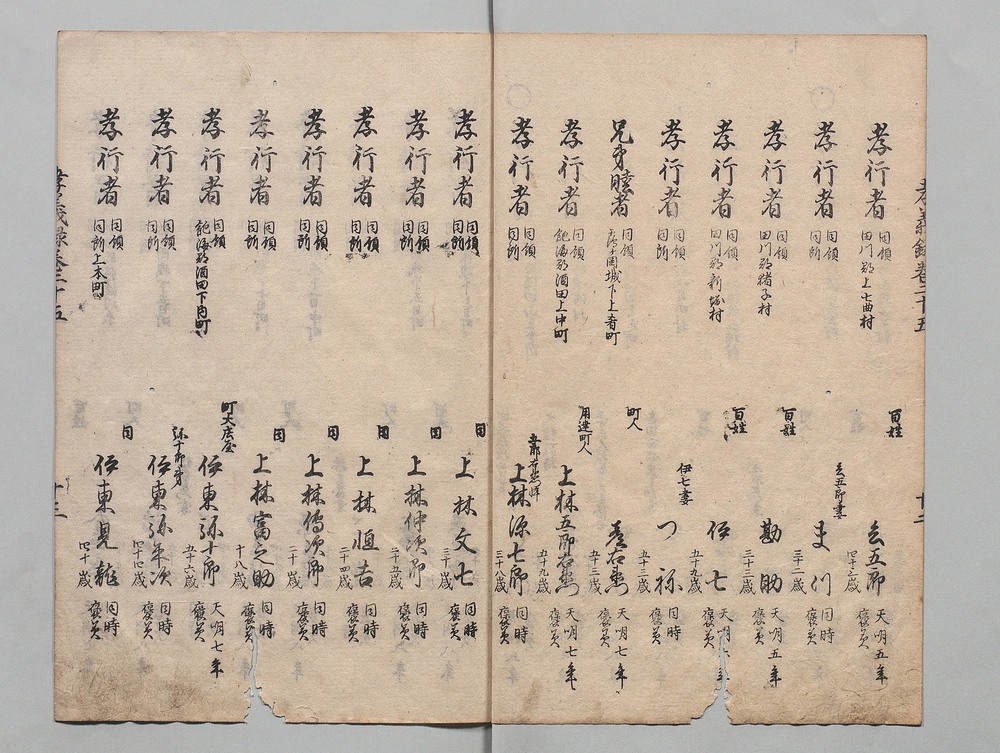 孝義録巻三十五
孝行者 同領 田川郡上七曲村 百姓 玄五郎 四十二歳 天明五年 褒美
孝行者 同領 同所 玄五郎妻 ま川 三十二歳 同時 褒美
孝行者 同領 田川郡猪子村 百姓 勘助 三十三歳 天明五年 褒美
孝行者 同領 田川郡新堀村 百姓 伊七 五十九歳 天明 年 褒美
孝行者 同領 同所 伊七妻 つ祢 五十三歳 同時 褒美
兄弟睦者 同領 岡城下上肴町 町人 右衛 五十三歳 天明七年 褒美
孝行者 同領 飽海郡酒田上中町 用達町人 上林五郎右衛 五十九歳 天明七年 褒美
孝行者 同領 同所 上林源七郎 三十八歳 同時 褒美
十二
孝行者 同領 同所 同 上林文七 三十歳 同時 褒美
孝行者 同領 同所 同 上林仲次郎 二十五歳 同時 褒美
孝行者 同領 同所 同 上林恒吉 二十四歳 同時 褒美
孝行者 同領 同所 同 上林傳次郎 二十歳 同時 褒美
孝行者 同領 同所 同 上林富之助 十八歳 同時 褒美
孝行者 同領 飽海郡酒田下内町 町大庄屋 伊東弥十郎 五十六歳 天明七年 褒美
孝行者 同領 同所 弥十郎弟 伊東弥平次 四十四歳 同時 褒美
孝行者 同領 同所上本町 同 伊東見龍 四十歳 同時 褒美
孝義録巻三十五
十三